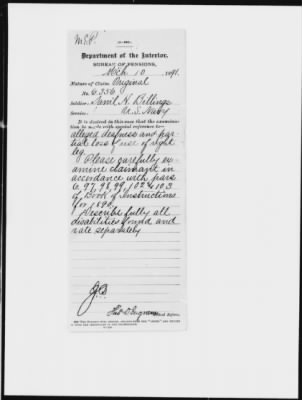 Department of the Interior,
BUREAU OF PENSIONS,
Mch 10, 1891.
Nature of Claim, Original
No. 6.336
Soldier, Saml H. Billings
Service, U.S. Navy
It is desired in this case that the examination be made with special reference to
alleged deafness and partial
loss of use of right
leg.
Please carefully examine
claimant in
accordance with pars
6, 97, 98, 99, 102 & 103
of Book of Instructions
for 1890.
Describe fully all
disabilities found and
rate separately